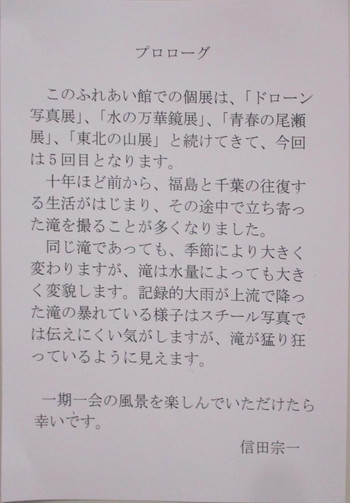 プロローグ
このふれあい館での個展は、「ドローン
写真展」、「水の万華鏡展」、「青春の尾瀬
展」、「東北の山展」と続けてきて、今回
は５回目となります。
十年ほど前から、福島と千葉の往復す
る生活がはじまり、その途中で立ち寄っ
た滝を撮ることが多くなりました。
同じ滝であっても、季節により大きく
変わりますが、滝は水量によっても大き
く変貌します。記録的大雨が上流で降っ
た滝の暴れている様子はスチール写真で
は伝えにくい気がしますが、滝が猛り狂
っているように見えます。
一期一会の風景を楽しんでいただけたら
幸いです。
信田宗一